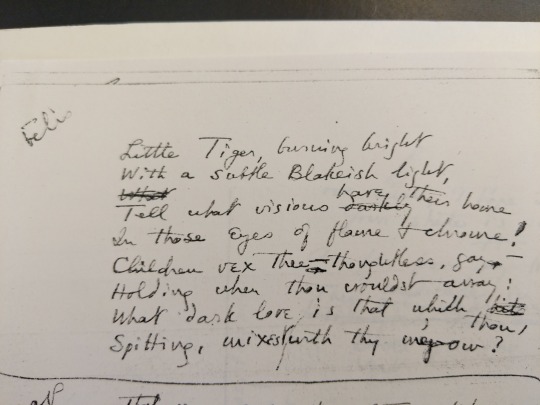 Felis
Little Tiger, burning bright
With a subtle Blakeish light,
What
Tell what visions have their home
In those eyes of flame & chrome!
Children vex thee – thoughtless, gay –
Holding when thou wouldst away:
What dark love is that which thou,
Spitting, mixest with thy meow?